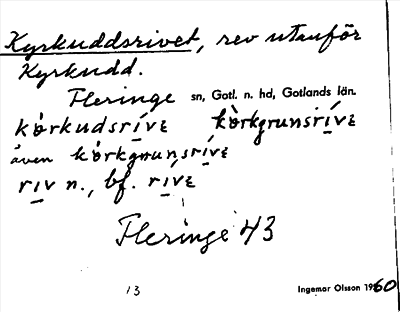 Kyrkuddsrivet, rev utanför
Kyrkudd.
Fleringe sn, Gotl. n. hd, Gotlands län.
kòrkudsríve kòrkgrunsríve
även kòrkgrunsríve
riv n., bf. ríve
Fleringe 43
13 Ingemar Olsson 1960